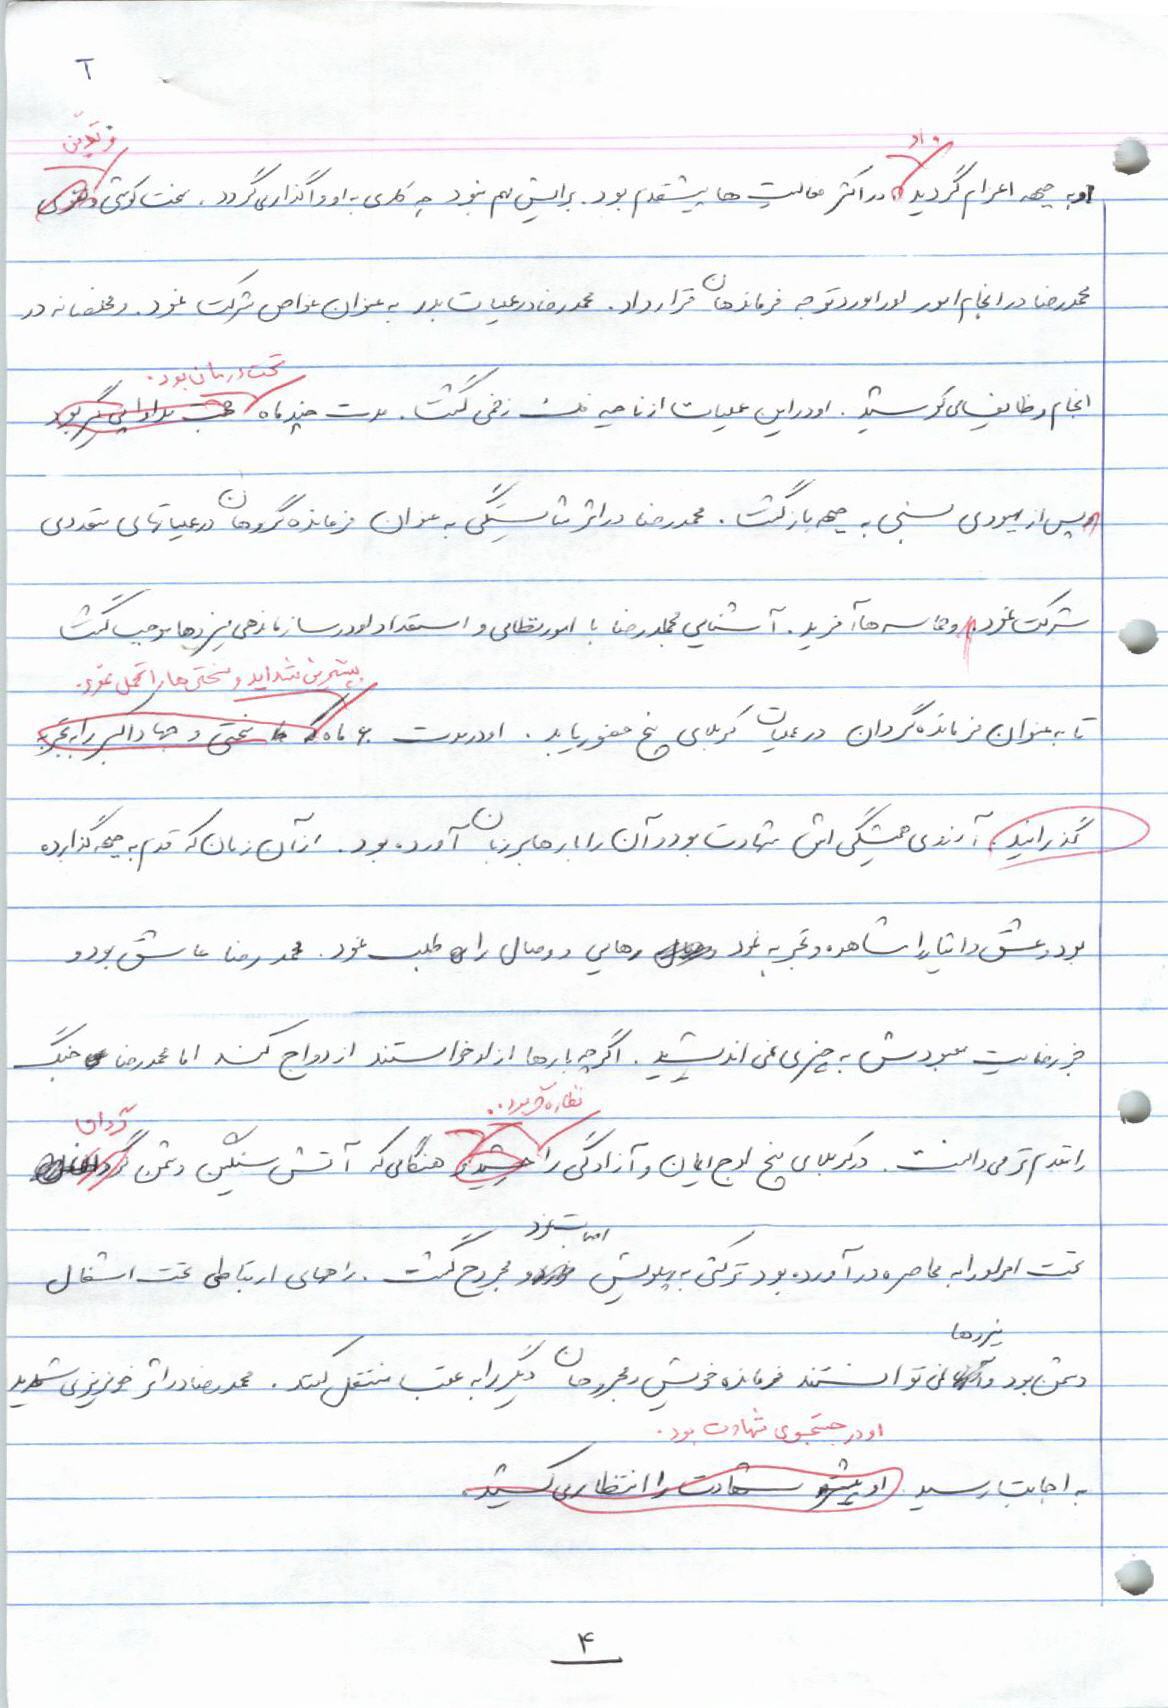 و تدین
و او
او به جبهه اعزام گردید. در اکثر فعالیت ها پیشقدم بود. برایش مهم نبود چه کاری به او واگذار می گردد. سخت کوشی و تقوی
محمدرضا در انجام امور او را مورد توجه فرماندهان قرار داد. محمدرضا در عملیات بدر به عنوان غواص شرکت نمود. و مخلصانه در
تحت درمان بود.
انجام وظایف می کوشید. او در این عملیات از ناحیه فک زخمی گشت. مدت چند ماه تحت مداوا پی گیر بود
پس از بهبودی نسبی به جبهه بازگشت. محمدرضا در اثر شایستگی به عنوان فرمانده گروهان در عملیاتهای متعددی
شرکت نمود و حماسه ها آفرید. آشنایی محمدرضا با امور نظامی و استعداد او در سازماندهی نیروها موجب گشت
بیشترین شداید و سختی ها را تحمل نمود.
تا به عنوان فرمانده گردان در عملیات کربلای پنج حضور یابد. او در مدت ۶۰ ماه که سختی و جهاد اکبر را به تجربه
گذرانید، آرزوی همیشگی اش شهادت بود و آن را بارها بر زبان آورده بود. از آن زمان که قدم به جبهه گذارده
بود و عشق و ایثار را مشاهده و تجربه نمود رهایی و وصال را طلب نمود. محمدرضا عاشق بود و
جز رضایت معبودش به چیزی نمی اندیشید. اگر چه بارها از او خواستند ازدواج کند اما محمدرضا جنگ
نظاره گر بود.
گردان
را مقدم تر می دانست. در کربلای پنج اوج ایمان و آزادگی را هنگامی که آتش سنگین دشمن
اصابت نمود
تحت امر او را به محاصره در آورده بود ترکشی به پهلویش و مجروح گشت. راههای ارتباطی تحت اشغال
نیروها
دشمن بود و نمی توانستند فرمانده خویش و مجروحان دیگر را به عقب منتقل کنند. محمدرضا در اثر خونریزی شدید
او در جستجوی شهادت بود.
به اجابت رسید. او شهادت را انتظار می کشید.
۴